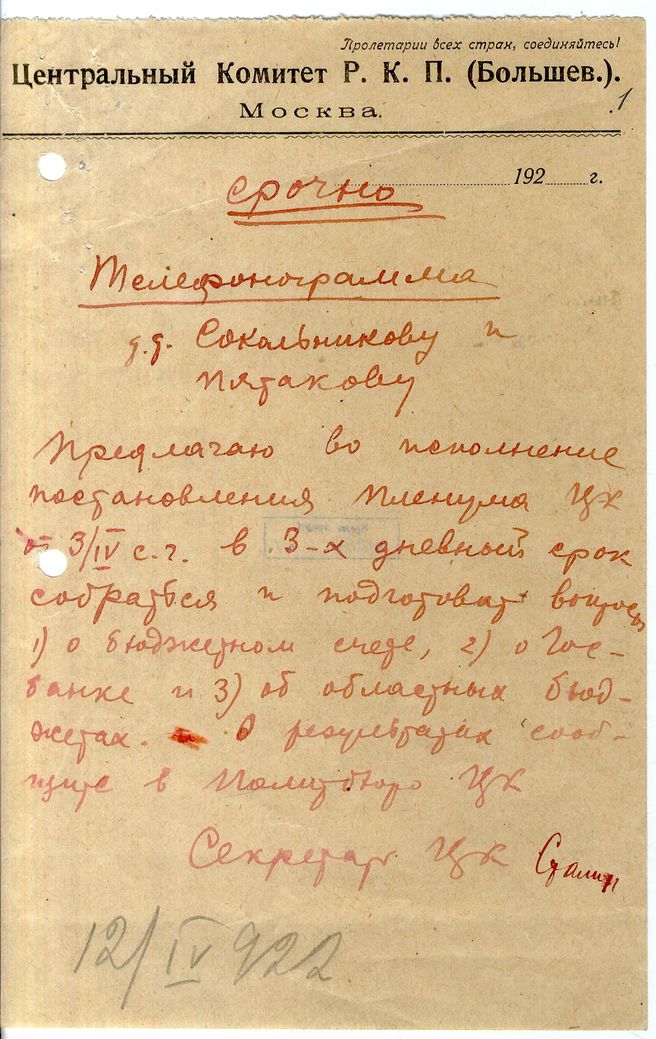 Пролетарии всех стран, соединяйтесь!
Центральный Комитет Р. К. П. (Большев.).
Москва.
1
192 г.
Срочно
Телефонограмма
д.д. Сокальникову и
Пятакову
Предлагаю во исполнение
постановления Пленума ЦК
от 3/IV с.г. в 3-х дневный срок
собраться и подготовить вопросы
1) о бюджетном счете, 2) о Гос-
банке и 3) об областных бюд-
жетах. О результатах сооб-
щите в Политбюро ЦК
Секретарь ЦК Сталин
12/IV 922